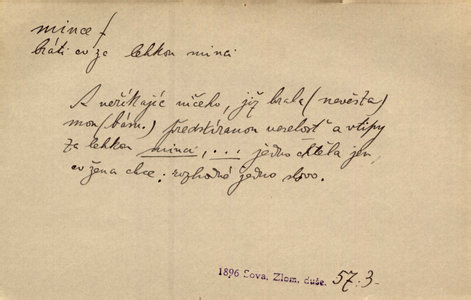 mince f
bráti co za lehkou minci
A neříkajíc ničeho, jíž brala (nevěsta)
mou (básn.) předstíranou veselost a vtipy
za lehkou minci, ... jedno chtěla jen,
co žena chce: rozhodné jedno slovo.
1896 Sova. Zlom. duše. 57.3-